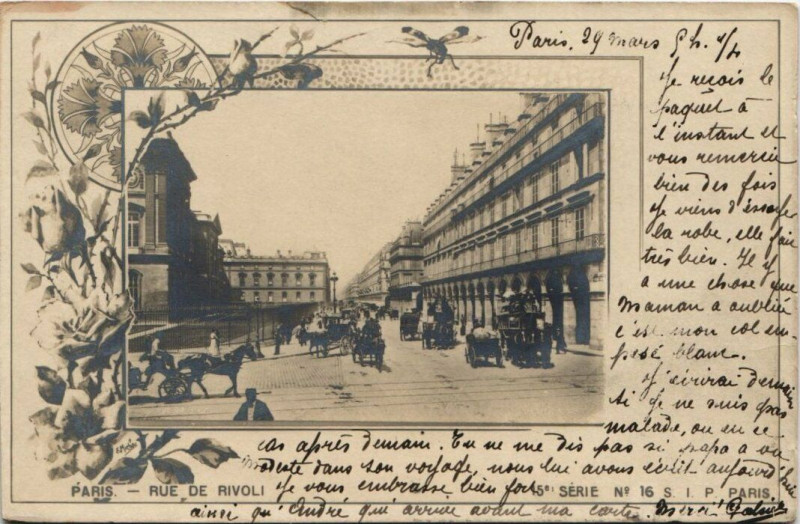 Paris, 29 mars 5h. 1/2
Je reçois le
paquet à
l'instant et
vous remercie
bien des fois
Je viens d'essayer
la robe, elle fait
très bien. Il y
a une chose que
Maman a oubliée
c'est mon col em-
pesé blanc.
J'écrirai demain
si je ne suis pas
malade, ou en ce
cas après demain. Tu ne me dis pas si papa a vu
dans son voyage, nous lui avons écrit aujourd'hui
Je vous embrasse bien fort
ainsi qu'André qui arrive avant ma carte. Merci!
PARIS. — RUE DE RIVOLI
5e SÉRIE Nº 16 S. I. P. PARIS